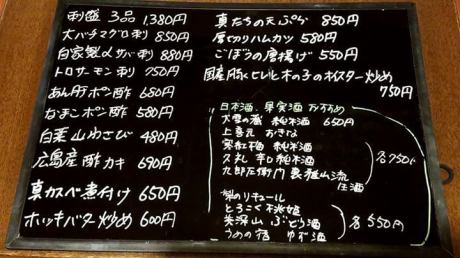 刺盛 3品 1,380円
大バチマグロ刺 850円
自家製〆サバ刺 880円
トロサーモン刺 750円
あん肝ポン酢 680円
なまこポン酢 580円
白菜山わさび 480円
広島産酢カキ 690円
真カスベ煮付け 650円
ホッキバター炒め 600円
真たちの天ぷら 850円
厚切りハムカツ 580円
ごぼうの唐揚げ 550円
国産豚ヒレと木の子のオイスター炒め
750円
日本酒、果実酒 おすすめ
大雪の蔵 純米酒 650円
上喜元 おきな
寒紅梅 純米酒
久丸 辛口純米酒
九郎左衛門 裏雅山流
各750円
梨のリキュール
とろこく桃姫
英深山 ぶどう酒
うめの宿 ゆず酒
各550円